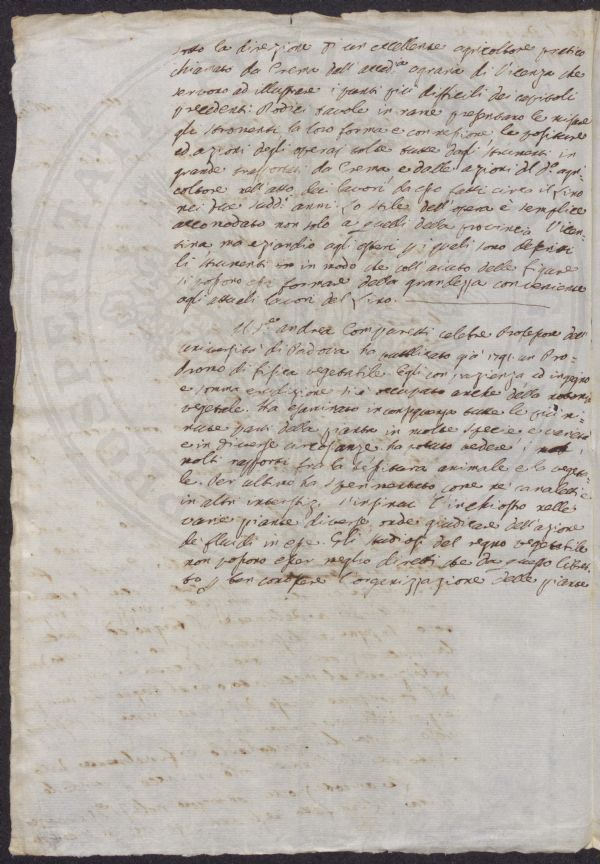 sotto la direzione di un eccellente agricoltore pratico
chiamato da Crema dall'accad.ia agraria di Vicenza che
servono ad illustrare i punti più difficili dei capitoli
precedenti. Dodici tavole in rame presentano le misure
gli stromenti la loro forma e connessione le positure
ed azioni degli operai tolte tutte dagli strumenti in
grande trasportati da Crema e dalle azioni del d.o agri
coltore nell'atto dei lavori da esso fatti circa il Lino
nei due sudd.i anni. Lo stile dell'opera è semplice
accomodato non solo a quelli della provincia Vicen
tina ma eziandio agli esteri p i quali sono descritti
li strumenti in modo che coll'aiuto delle figure
si possono essi formare della grandezza conveniente
agli attuali lavori del Lino.
Il S.r Andrea Comparetti celebre Professore dell'
università di Padova ha pubblicato già un Pro-
dromo di fisica vegetabile. Egli con pazienza ed ingegno
e somma erudizione si è occupato anche della
vegetale. ha esaminato in conseguenza tutte le più mi-
nute parti della pianta in molte specie e varietà
e in diverse circostanze. ha potuto vedere i
molti rapporti fra la tessitura animale e la vegeta
le. Per ultimo ha sperimentato come ne' canaletti e
in altri interstizj s'insinui l'inchiostro nelle
varie piante diverse, onde giudicare dell'azione
de fluidi in esse. Gli studiosi del regno vegetabile
non possono esser meglio diretti che da questo libret
to p ben conoscere l'organizzazione delle piante